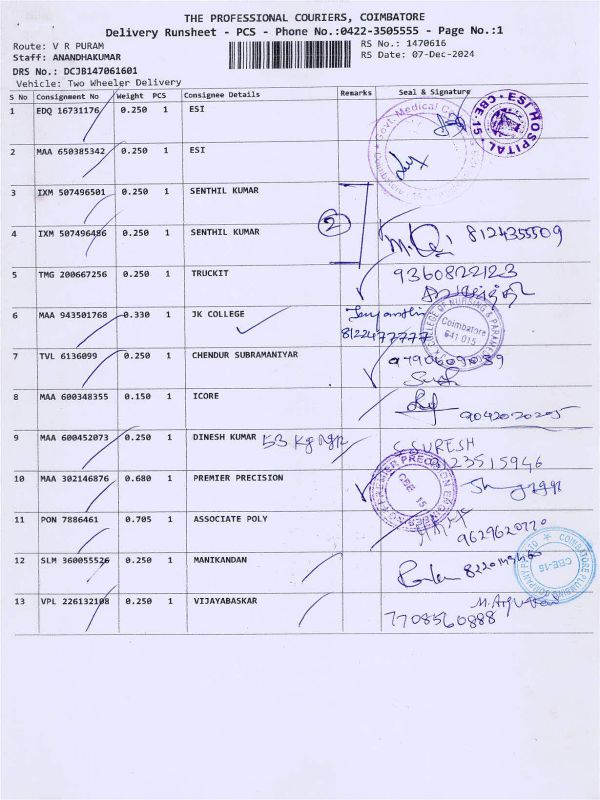 THE PROFESSIONAL COURIERS, COIMBATORE
Delivery Runsheet - PCS - Phone No.:0422-3505555 - Page No.:1
Route: V R PURAM
RS No.: 1470616
Staff: ANANDHAKUMAR
RS Date: 07-Dec-2024
DRS No.: DCJB147061601
Vehicle: Two Wheeler Delivery
S No Consignment No Weight PCS Consignee Details Remarks Seal & Signature
1 EDQ 16731176 0.250 1 ESI
ESI HOSPITAL CBE-15
2 MAA 650385342 0.250 1 ESI
3 IXM 507496501 0.250 1 SENTHIL KUMAR
2
4 IXM 507496486 0.250 1 SENTHIL KUMAR 8124355509
5 TMG 200667256 0.250 1 TRUCKIT 9360822123
6 MAA 943501768 0.330 1 JK COLLEGE
8122477777
COLLEGE OF NURSING & Coimbatore 641 015
7 TVL 6136099 0.250 1 CHENDUR SUBRAMANIYAR
8 MAA 600348355 0.150 1 ICORE
9042020205
9 MAA 600452073 0.250 1 DINESH KUMAR 53 Kg C SURESH
10 MAA 302146876 0.680 1 PREMIER PRECISION
PREMIER PRECISION CBE 15
11 PON 7886461 0.705 1 ASSOCIATE POLY
9629620770
12 SLM 360055526 0.250 1 MANIKANDAN
COIMBATORE PLUMBING COMPANY CBE-15
13 VPL 226132108 0.250 1 VIJAYABASKAR
7708560888